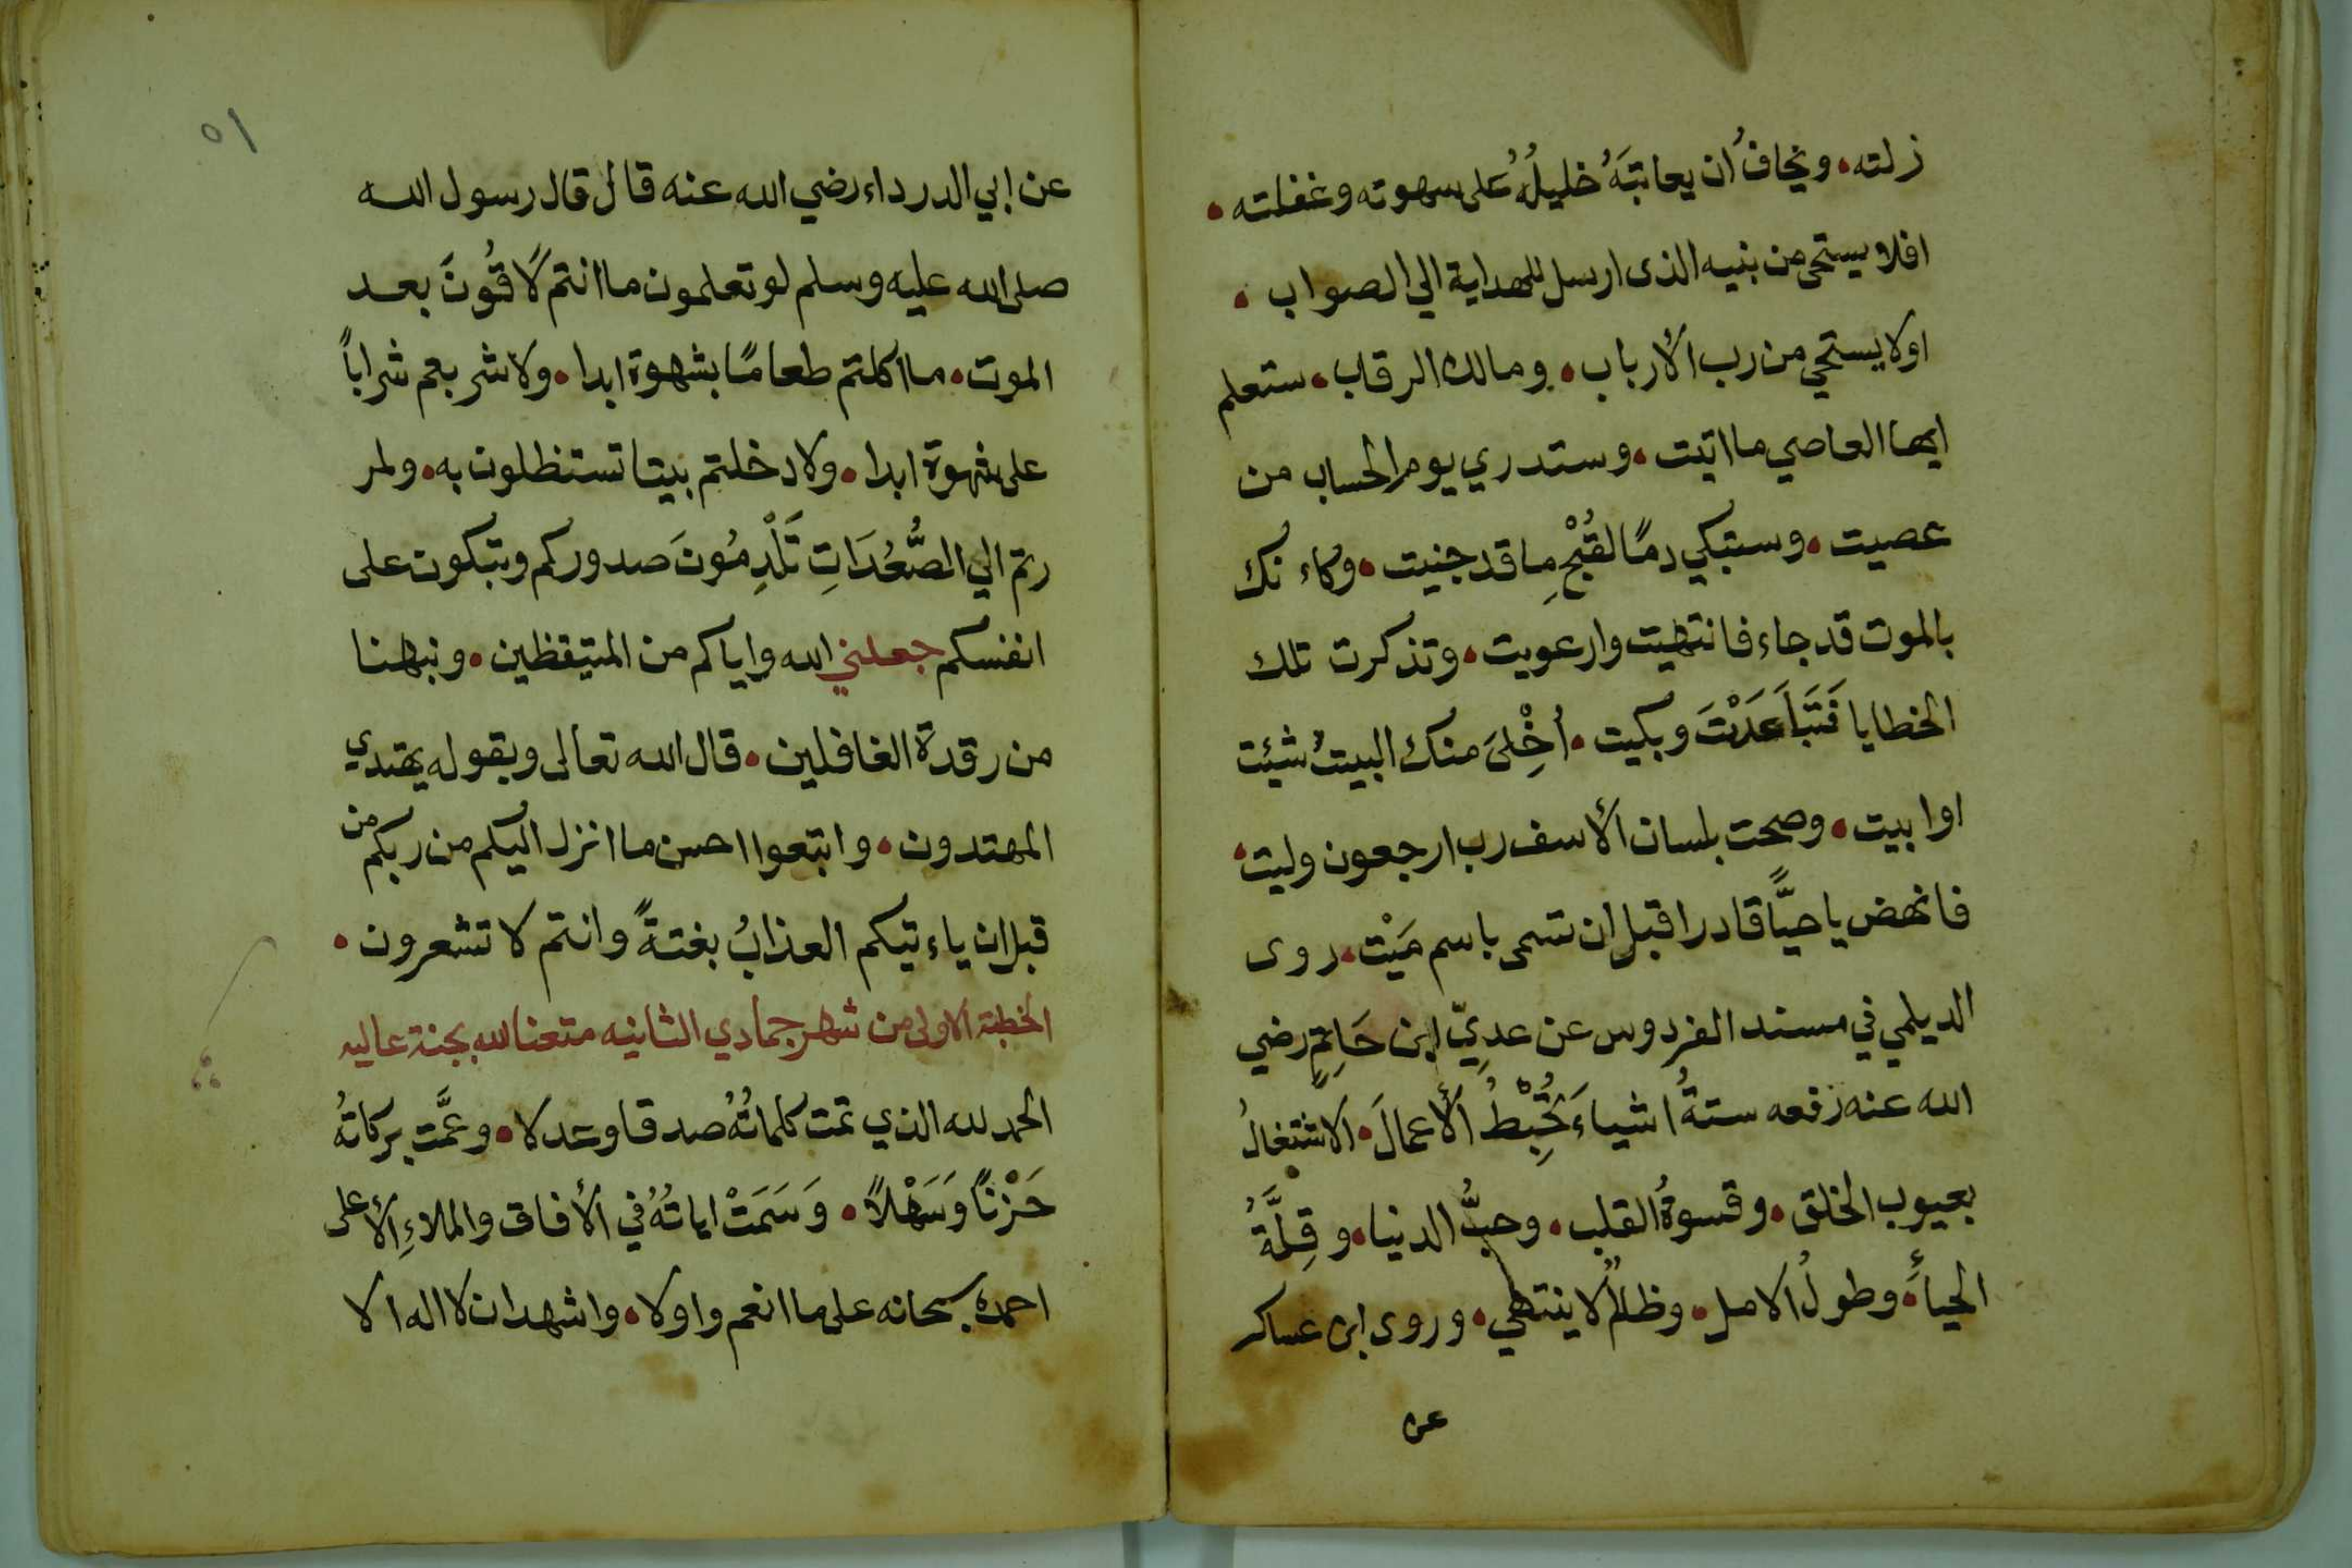 زلته • ويخافُ ان يعاتبَهُ خليلُهُ على سهوته وغفلته •
افلا يستحى من بنيه الذى ارسل للهداية الي الصواب •
اولا يستحي من رب الأرباب • ومالك الرقاب • ستعلم
ايها العاصي ما اتيت • وستدري يوم الحساب من
عصيت • وستبكي دمًا لقُبْحِ ما قد جنيت • وكاء نك
بالموت قد جاء فانتهيت وارعويت • وتذكرت تلك
الخطايا فَتَبَاعَدْتَ وبكيت • أخْلِىَ منك البيتُ شيئت
او ابيت • وصحت بلسان الأسف رب ارجعون وليت •
فانهض يا حيًّا قادرا قبل ان تسمى باسم مَيْت • روى
الديلمي في مسند الفردوس عن عديّ ابن حَاتِمٍ رضي
الله عنه رفعه ستةُ اشياءَ تُحْبِطُ الأعمالَ • الاشتغالُ
بعيوب الخلق • وقسوةُ القلب • وحبُّ الدنيا • وقِلَّةُ
الحياءِ • وطولُ الامل • وظلمٌ لا ينتهي • وروى ابن عساكر
عن
٥١
عن ابي الدرداء رضي الله عنه قال قال رسول الله
صلى الله عليه وسلم لو تعلمون ما انتم لَاقُونَ بعد
الموت • ما اكلتم طعامًا بشهوة ابدا • ولا شربتم شراباً
على شهوة ابدا • ولا دخلتم بيتا تستظلون به • ولمر
رتم الي الصُّعُدَاتِ تَلْدِمُونَ صدوركم وتبكون على
انفسكم جعلني الله واياكم من المتيقظين • ونبهنا
من رقدة الغافلين • قال الله تعالى وبقوله يهتدي
المهتدون • واتبعوا احسن ما انزل اليكم من ربكم من
قبل ان ياء تيكم العذابُ بغتةً وانتم لا تشعرون •
الخطبة الاولى من شهر جمادي الثانيه متعنا الله بجنة عاليه
الحمد لله الذي تمت كلماتُهُ صدقا وعدلا • وعمَّت بركاتُه
حَزْنًا وَسَهْلاً • وَسَمَتْ اياتُهُ في الأفاق والملاءِ الأعلى
احمده سبحانه على ما انعم واولا • واشهد ان لا اله الا